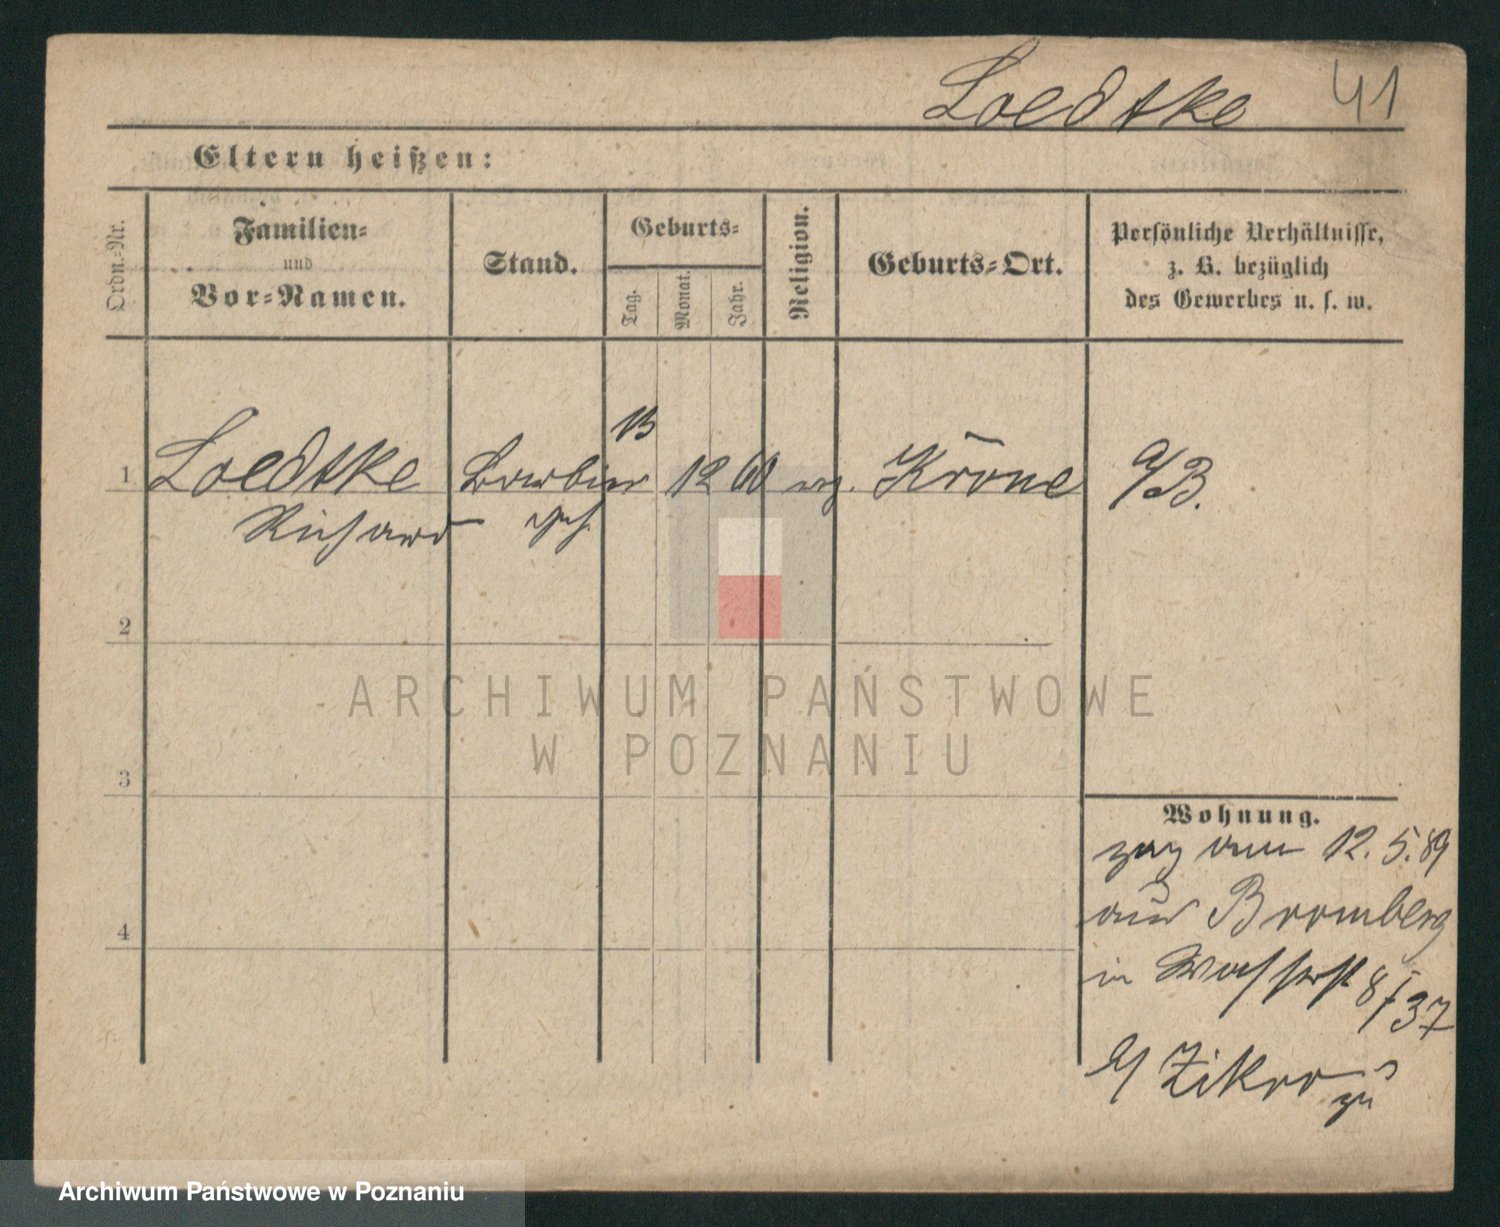 Loedtke 41
Eltern heißen:
Ordn.-Nr.
Familien-
und
Vor-Namen.
Stand.
Geburts-
Tag.
Monat.
Jahr.
Religion.
Geburts-Ort.
Persönliche Verhältnisse,
z. B. bezüglich
des Gewerbes u. s. w.
1 Loedtke Barbier 12 60 evg. Krone a/B.
Richard geh.
2
3
4
ARCHIWUM PAŃSTWOWE
W POZNANIU
Wohnung.
zug am 12. 5. 89
aus Bromberg
in Wasserstr 8/37
zu
Archiwum Państwowe w Poznaniu